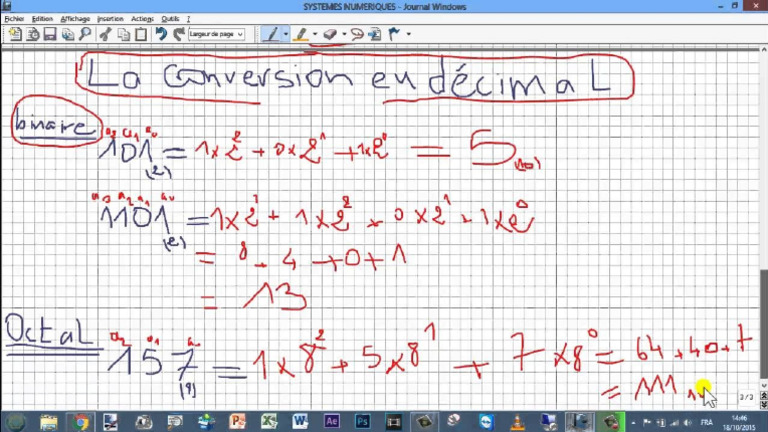 SYSTEMES NUMERIQUES - Journal Windows
Fichier Edition Affichage Insertion Actions Outils ?
Largeur de page
La conversion en décimal
binaire
a₂ a₁ a₀
101(2) = 1x2² + 0x2¹ + 1x2⁰ = 5(10)
a₃ a₂ a₁ a₀
1101(2) = 1x2³ + 1x2² + 0x2¹ + 1x2⁰
= 8 + 4 + 0 + 1
= 13
Octal
a₂ a₁ a₀
157(8) = 1x8² + 5x8¹ + 7x8⁰ = 64 + 40 + 7
= 111
3/3
FRA
14:46
18/10/2015